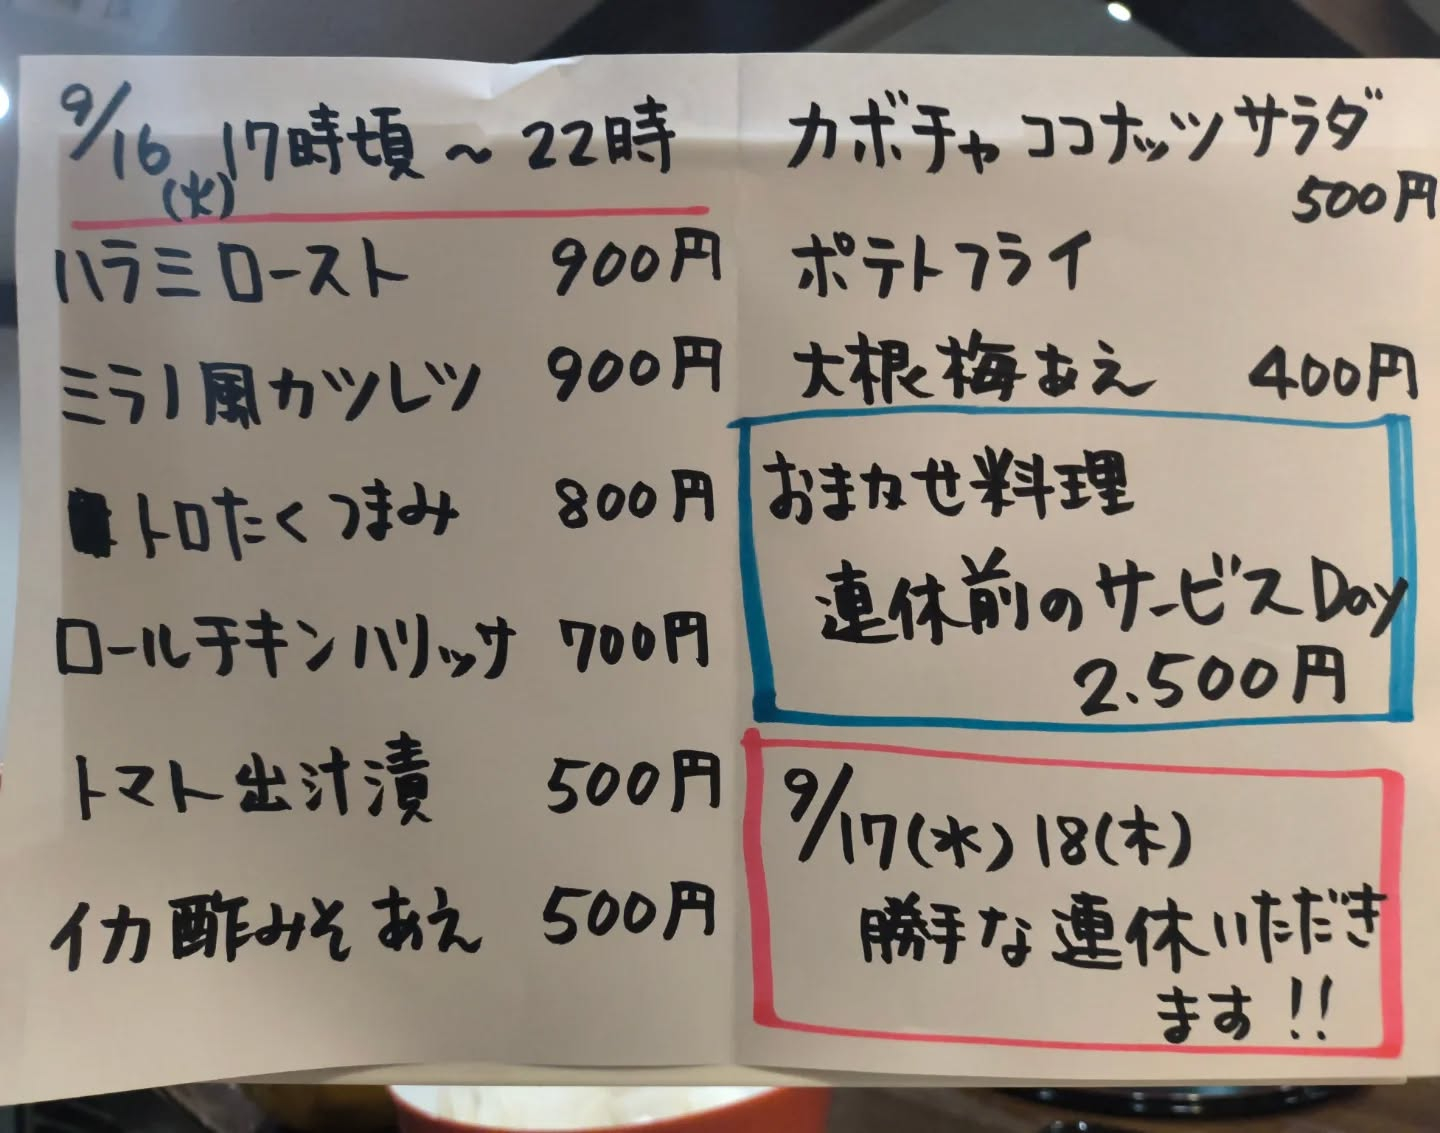 9/16(火) 17時頃～22時
ハラミロースト 900円
ミラノ風カツレツ 900円
トロたくつまみ 800円
ロールチキンハリッサ 700円
トマト出汁漬 500円
イカ酢みそあえ 500円
カボチャココナッツサラダ
500円
ポテトフライ
大根梅あえ 400円
おまかせ料理
連休前のサービスDay
2.500円
9/17(水)18(木)
勝手な連休いただき
ます!!